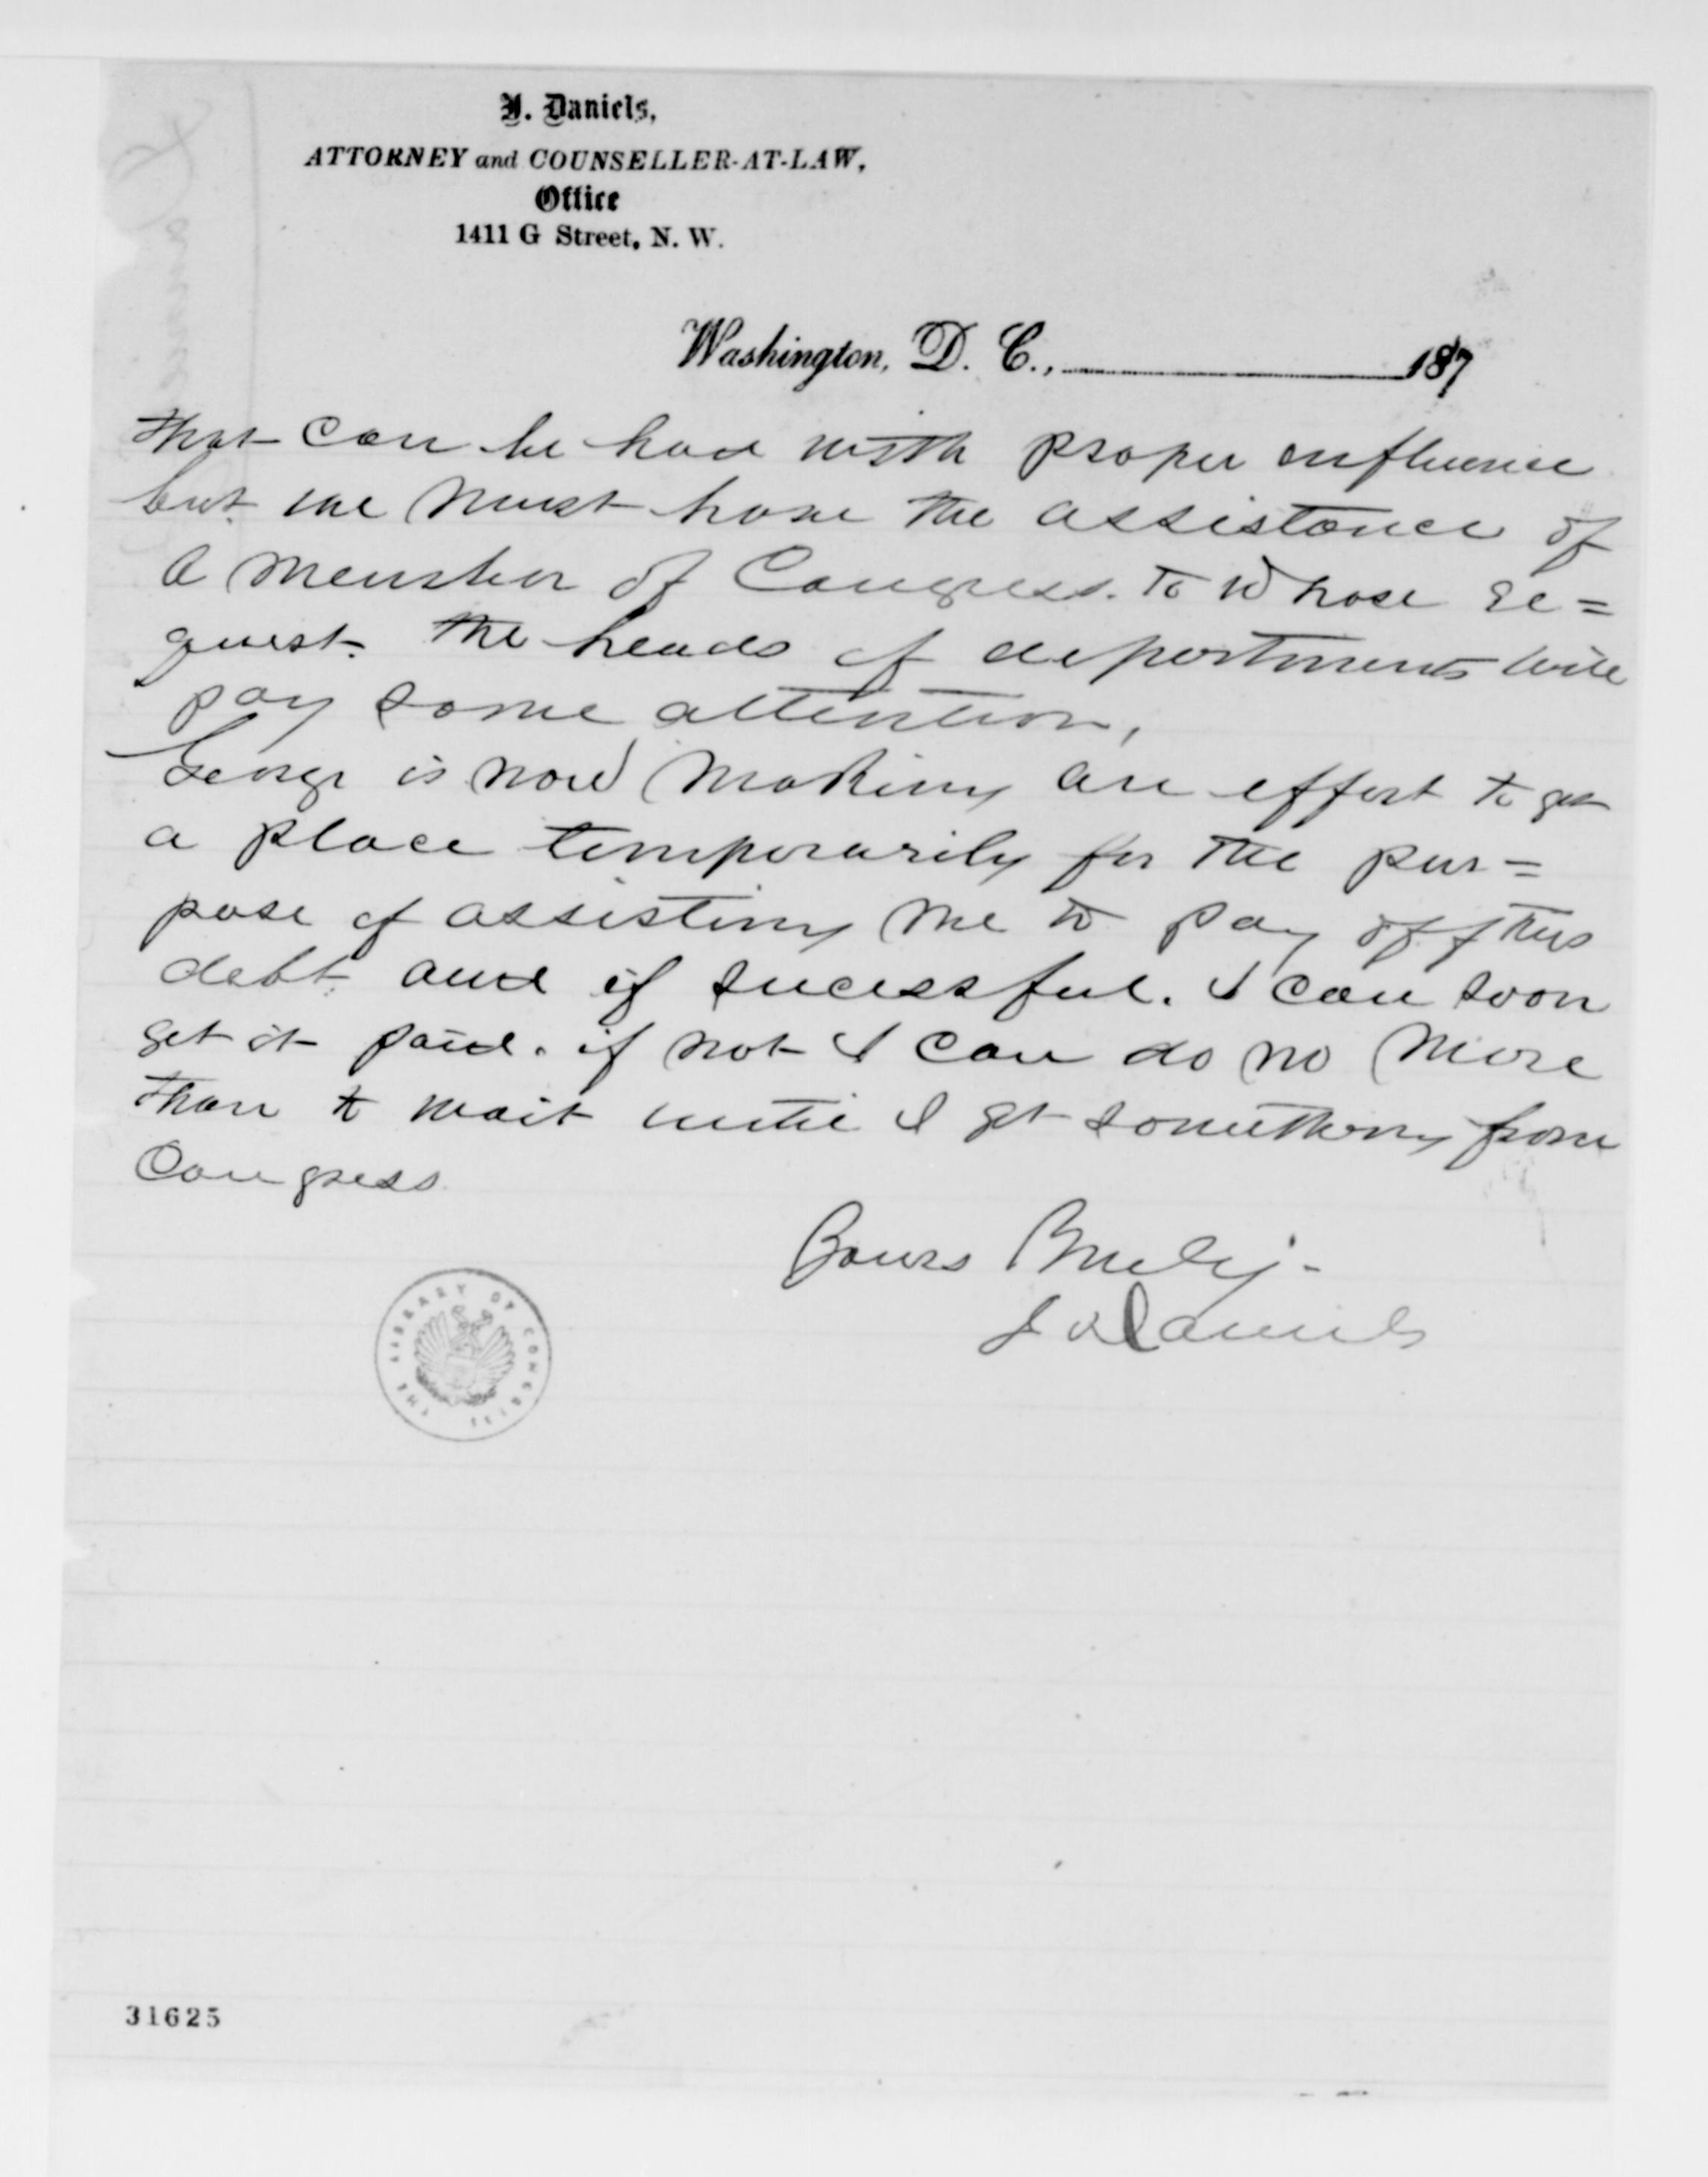 J. Daniels,
ATTORNEY and COUNSELLER-AT-LAW,
Office
1411 G Street, N. W.
Washington, D. C., 187
that can be had with proper influence
but we must have the assistance of
a member of Congress. to whose re=
quest. the heads of departments will
pay some attention,
George is now making an effort to get
a place temporarily for the pur=
pose of assisting me to pay off this
debt. and if sucessful. I can soon
get it paid. if not I can do no more
than to wait until I get something from
Congress
Yours Truly.
J Daniels
THE LIBRARY OF CONGRESS
31625